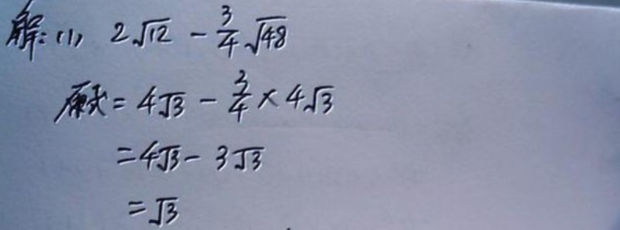 解:(1) 2√12 - 3/4√48
原式 = 4√3 - 3/4 × 4√3
= 4√3 - 3√3
= √3